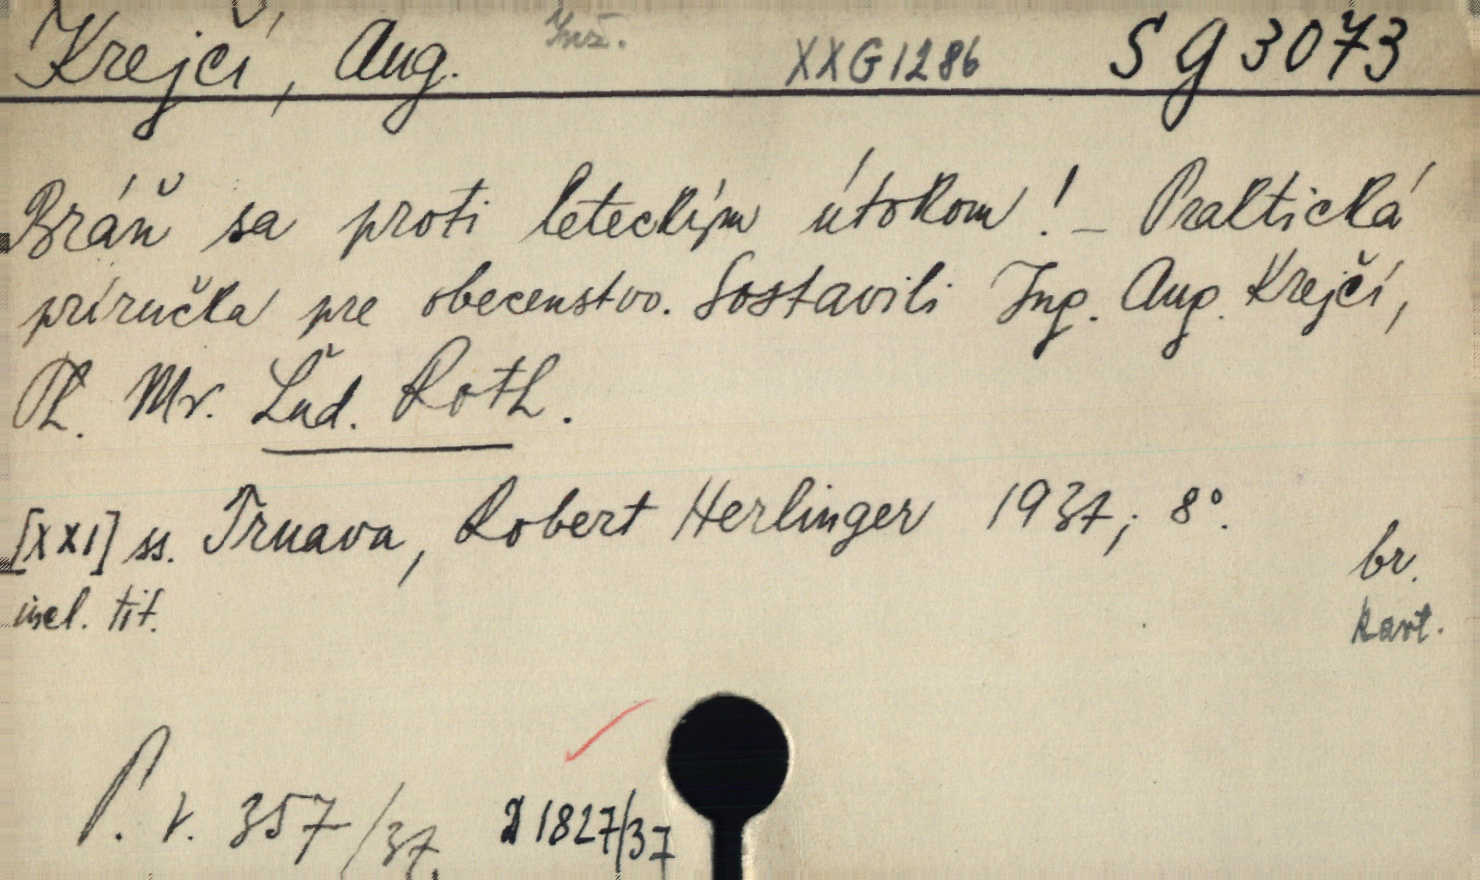 Krejčí, Aug. Inž. XXG1286 SG3073
Bráň sa proti leteckým útokom! – Praktická
príručka pre obecenstvo. Sostavili Ing. Aug. Krejčí,
Ph. Mr. Ľud. Roth.
[XXI] ss. Trnava, Robert Herlinger 1937; 8°.
br.
incl. tit.
kart.
P. v. 357/37. D 1827/37